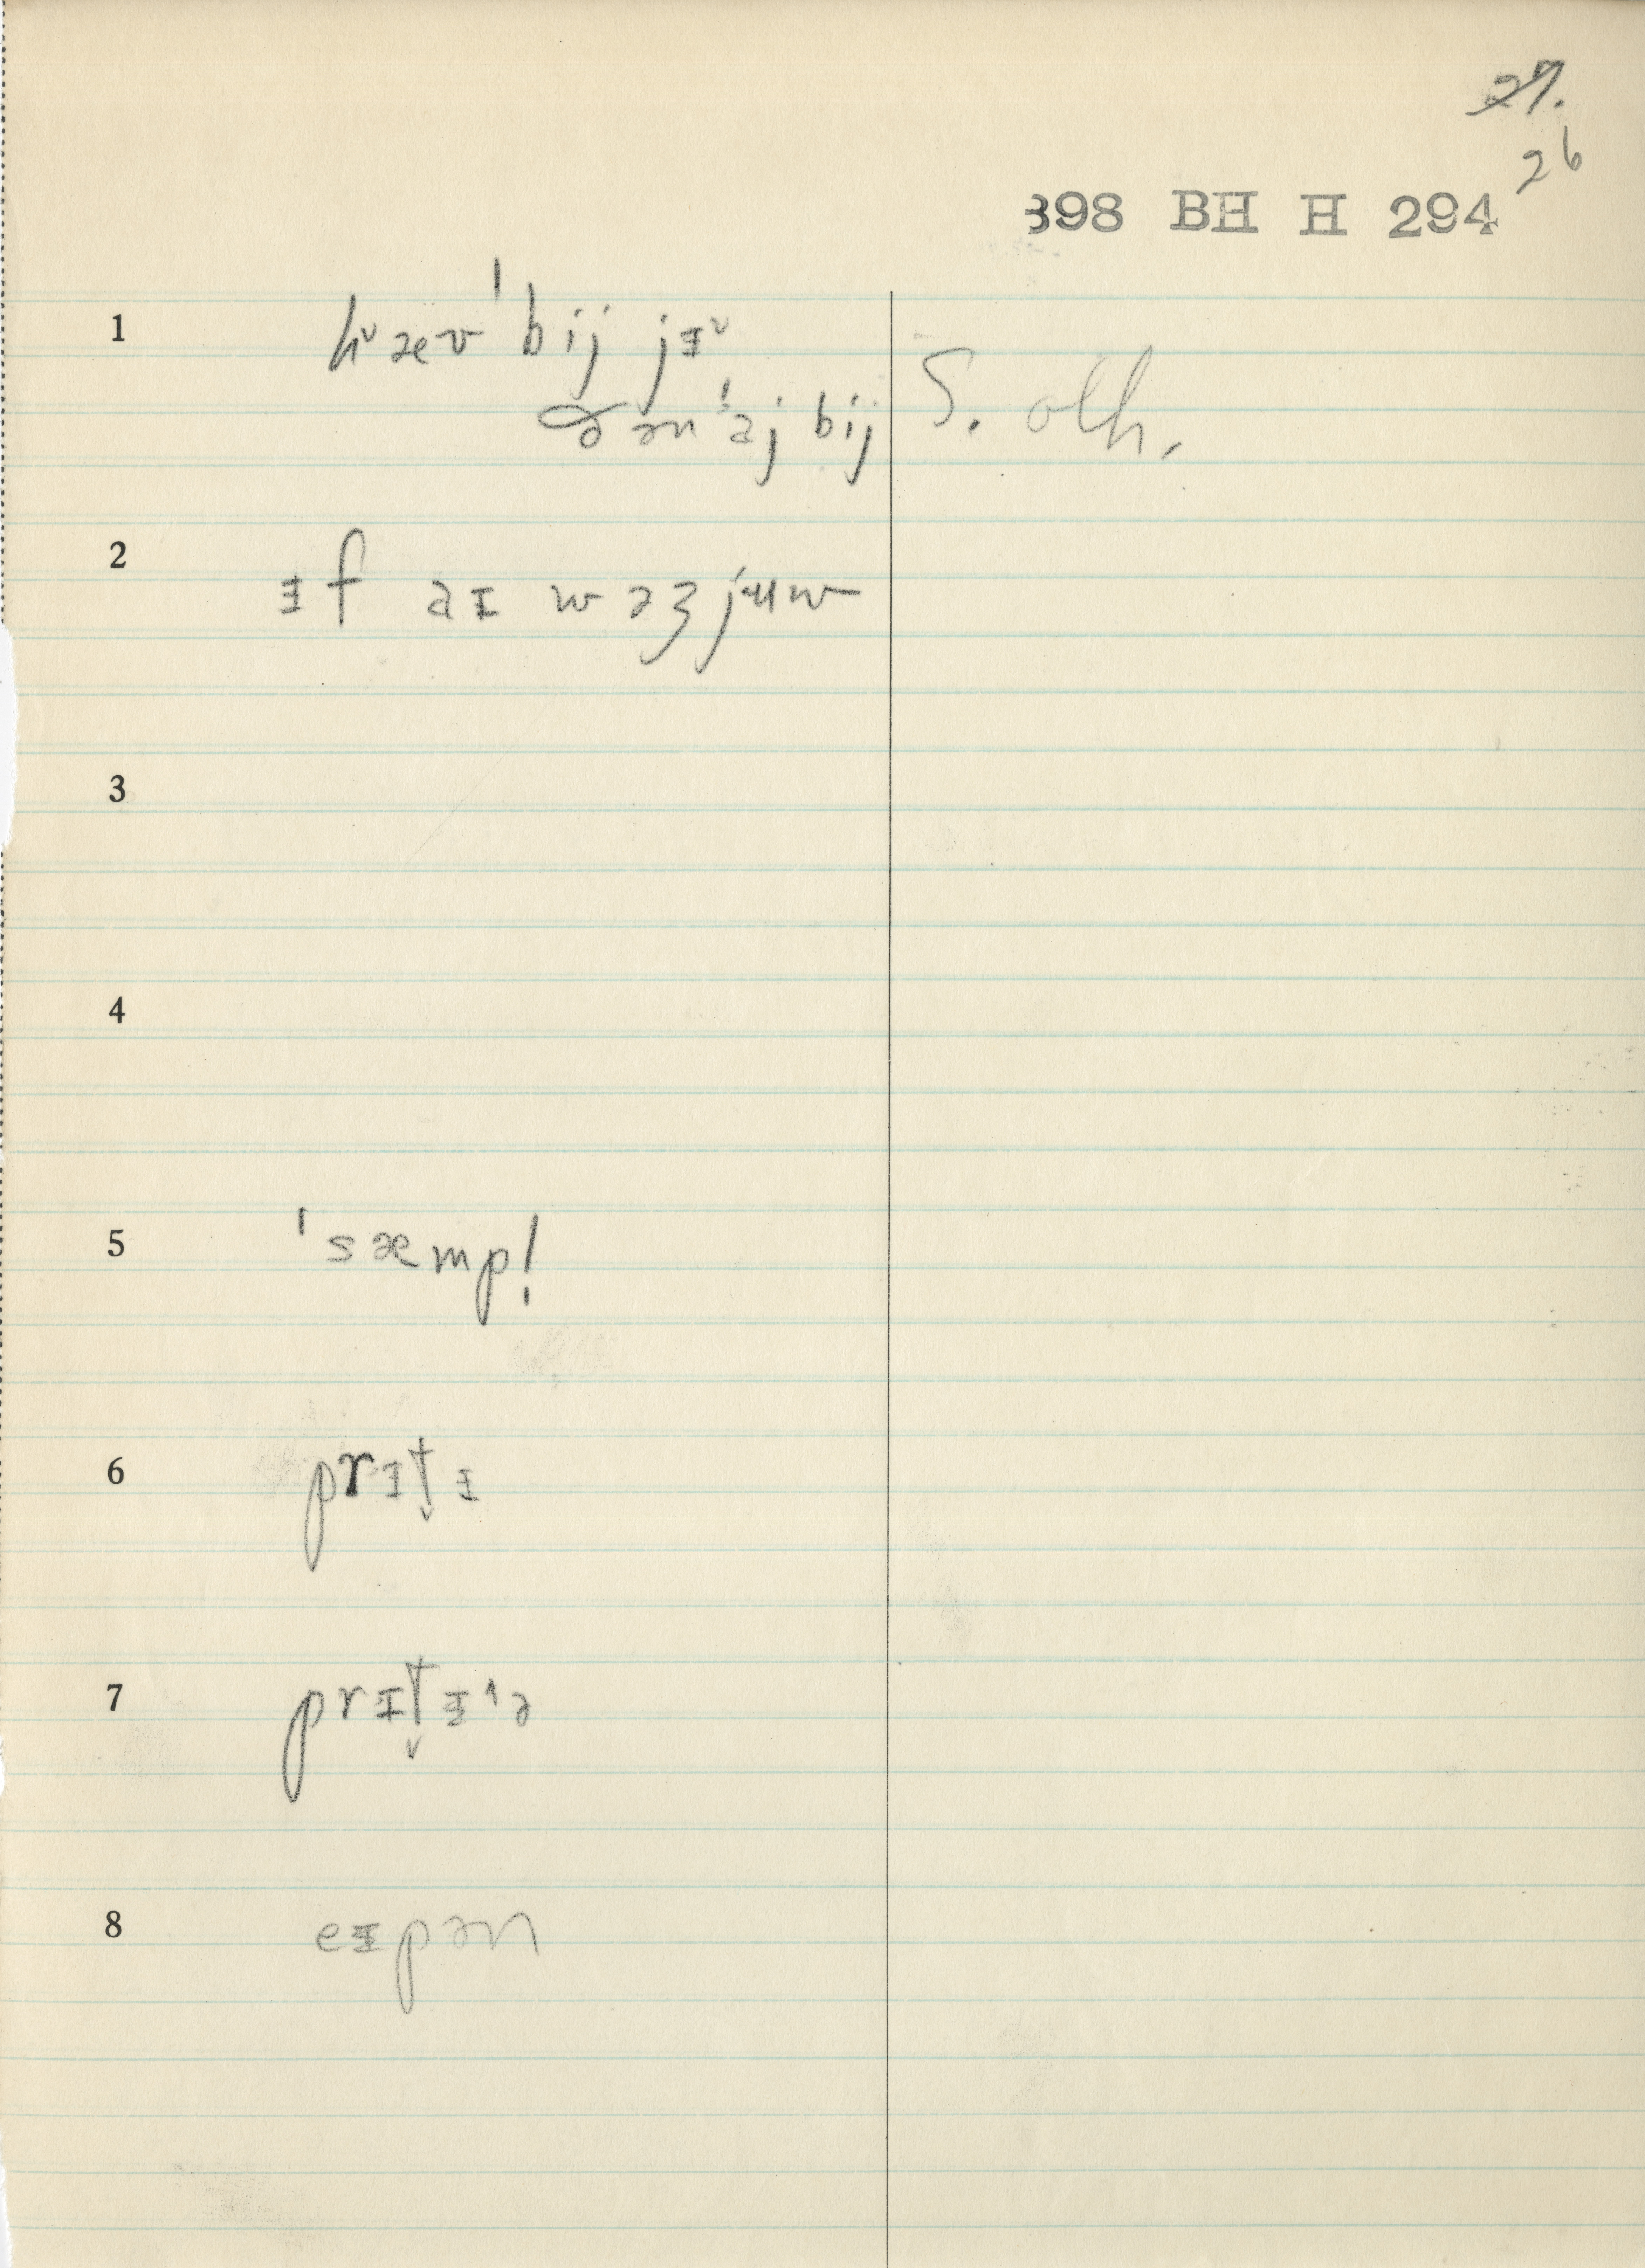 27.
26
398 BH H 294
1 hᵛæv ˈbij jɪᵛ
ə ən ˈaj bij S. oth.
2 ɪf aɪ wəʒ juw
3
4
5 ˈsæmp!
6 prɪt̬ɪ
7 prɪt̬ɪ˄ə
8 eɪpən